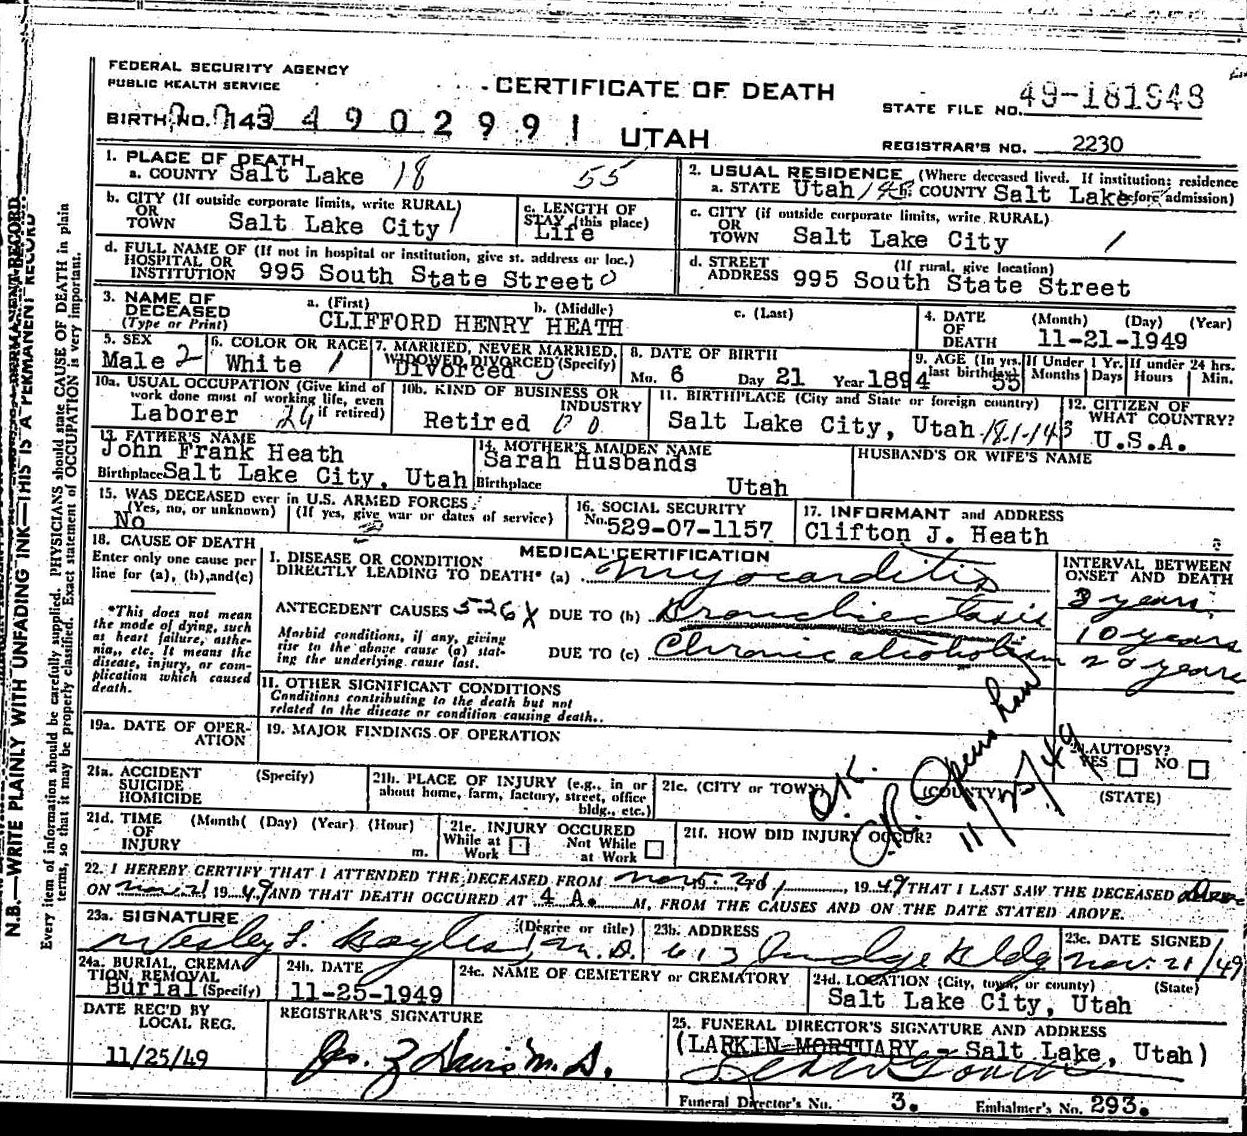 FEDERAL SECURITY AGENCY
PUBLIC HEALTH SERVICE
CERTIFICATE OF DEATH
STATE FILE NO. 49-181948
BIRTH NO. 143 4902991 UTAH
REGISTRAR'S NO. 2230
1. PLACE OF DEATH
a. COUNTY Salt Lake 18 55
2. USUAL RESIDENCE (Where deceased lived. If institution; residence before admission)
a. STATE Utah COUNTY Salt Lake
b. CITY (If outside corporate limits, write RURAL)
OR
TOWN Salt Lake City 1
c. LENGTH OF
STAY (this place)
Life
c. CITY (if outside corporate limits, write RURAL)
OR
TOWN Salt Lake City 1
d. FULL NAME OF (If not in hospital or institution, give st. address or loc.)
HOSPITAL OR
INSTITUTION 995 South State Street 0
d. STREET (If rural, give location)
ADDRESS 995 South State Street
3. NAME OF
DECEASED
(Type or Print)
a. (First) b. (Middle) c. (Last)
CLIFFORD HENRY HEATH
4. DATE
OF
DEATH
(Month) (Day) (Year)
11-21-1949
5. SEX
Male 2
6. COLOR OR RACE
White 1
7. MARRIED, NEVER MARRIED,
WIDOWED, DIVORCED (Specify)
Divorced
8. DATE OF BIRTH
Mo. 6 Day 21 Year 1894
9. AGE (In yrs. last birthday) 55
If Under 1 Yr. Months Days
If under 24 hrs. Hours Min.
10a. USUAL OCCUPATION (Give kind of
work done most of working life, even
if retired)
Laborer
10b. KIND OF BUSINESS OR
INDUSTRY
Retired
11. BIRTHPLACE (City and State or foreign country)
Salt Lake City, Utah 18-1-143
12. CITIZEN OF
WHAT COUNTRY?
U.S.A.
13. FATHER'S NAME
John Frank Heath
Birthplace Salt Lake City, Utah
14. MOTHER'S MAIDEN NAME
Sarah Husbands
Birthplace Utah
HUSBAND'S OR WIFE'S NAME
15. WAS DECEASED ever in U.S. ARMED FORCES
(Yes, no, or unknown) (If yes, give war or dates of service)
No
16. SOCIAL SECURITY
No. 529-07-1157
17. INFORMANT and ADDRESS
Clifton J. Heath
18. CAUSE OF DEATH
Enter only one cause per
line for (a), (b), and (c)
*This does not mean
the mode of dying, such
as heart failure, asthe-
nia,, etc. It means the
disease, injury, or com-
plication which caused
death.
MEDICAL CERTIFICATION
I. DISEASE OR CONDITION
DIRECTLY LEADING TO DEATH* (a) Myocarditis
ANTECEDENT CAUSES 526X DUE TO (b) Bronchiectasis
Morbid conditions, if any, giving
rise to the above cause (a) stat-
ing the underlying cause last.
DUE TO (c) Chronic alcoholism
INTERVAL BETWEEN
ONSET AND DEATH
3 years
10 years
20 years
11. OTHER SIGNIFICANT CONDITIONS
Conditions contributing to the death but not
related to the disease or condition causing death..
19a. DATE OF OPER-
ATION
19. MAJOR FINDINGS OF OPERATION
AUTOPSY?
YES NO
O.K.
11/25/49
21a. ACCIDENT (Specify)
SUICIDE
HOMICIDE
21b. PLACE OF INJURY (e.g., in or
about home, farm, factory, street, office
bldg., etc.)
21c. (CITY or TOWN) (COUNTY) (STATE)
21d. TIME (Month( (Day) (Year) (Hour)
OF
INJURY m.
21e. INJURY OCCURED
While at Work
Not While at Work
21f. HOW DID INJURY OCCUR?
22. I HEREBY CERTIFY THAT I ATTENDED THE DECEASED FROM Nov. 2d, 1949 THAT I LAST SAW THE DECEASED
ON Nov 21 1949 AND THAT DEATH OCCURED AT 4 A. M, FROM THE CAUSES AND ON THE DATE STATED ABOVE.
23a. SIGNATURE (Degree or title)
Wesley L. Bayles, M.D.
23b. ADDRESS
613 Judge Bldg
23c. DATE SIGNED
Nov. 21/49
24a. BURIAL, CREMA
TION, REMOVAL
Burial (Specify)
24b. DATE
11-25-1949
24c. NAME OF CEMETERY or CREMATORY
24d. LOCATION (City, town, or county) (State)
Salt Lake City, Utah
DATE REC'D BY
LOCAL REG.
11/25/49
REGISTRAR'S SIGNATURE
25. FUNERAL DIRECTOR'S SIGNATURE AND ADDRESS
(LARKIN MORTUARY - Salt Lake, Utah)
Funeral Director's No. 3. Embalmer's No. 293.
N.B.—WRITE PLAINLY WITH UNFADING INK—THIS IS A PERMANENT RECORD
Every item of information should be carefully supplied. PHYSICIANS should state CAUSE OF DEATH in plain
terms, so that it may be properly classified. Exact statement of OCCUPATION is very important.